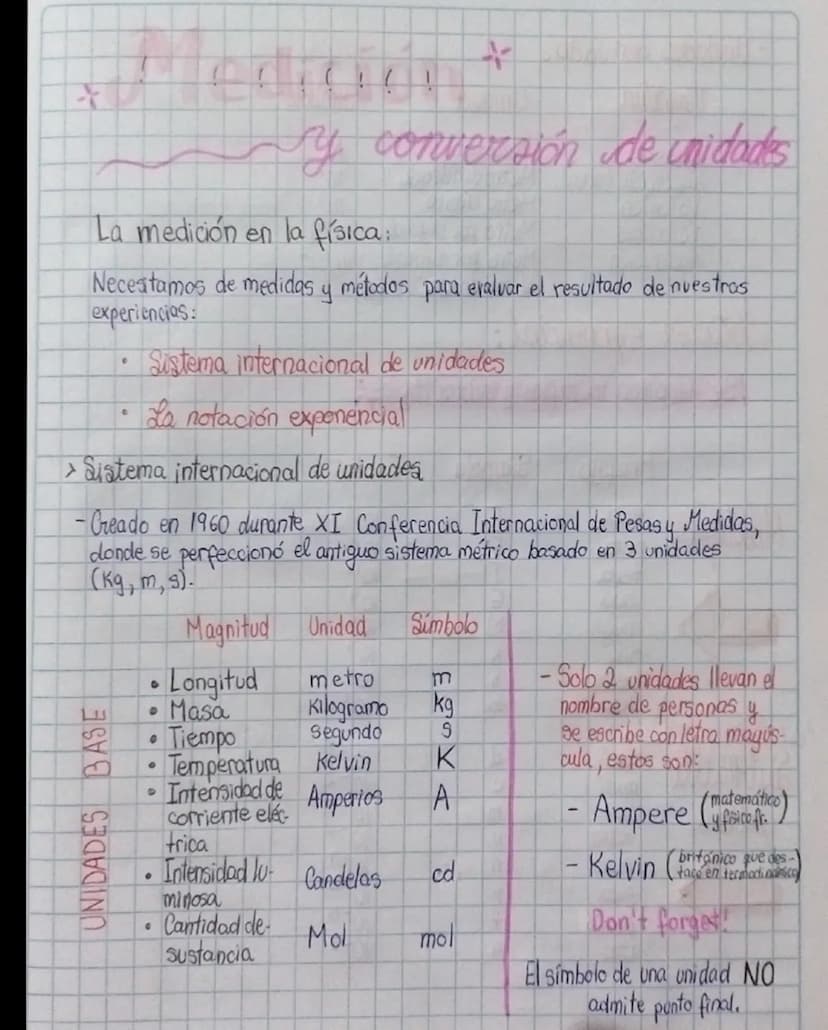 Medición
y conversión de unidades
La medición en la física:
Necesitamos de medidas y métodos para evaluar el resultado de nuestras
experiencias:
• Sistema internacional de unidades
• La notación exponencial
> Sistema internacional de unidades
- Creado en 1960 durante XI Conferencia Internacional de Pesas y Medidas,
donde se perfeccionó el antiguo sistema métrico basado en 3 unidades
(Kg, m, s).
Magnitud Unidad Símbolo
UNIDADES BASE
• Longitud metro m
• Masa Kilogramo kg
• Tiempo Segundo s
• Temperatura Kelvin K
• Intensidad de
corriente eléc- Amperios A
trica
• Intensidad lu- Candelas cd
minosa
• Cantidad de- Mol mol
sustancia
- Solo 2 unidades llevan el
nombre de personas y
se escribe con letra mayús-
cula, estos son:
- Ampere (matemático
y físico fr.)
- Kelvin (británico que des-
tacó en termodinámica)
Don't forget!
El símbolo de una unidad NO
admite punto final.